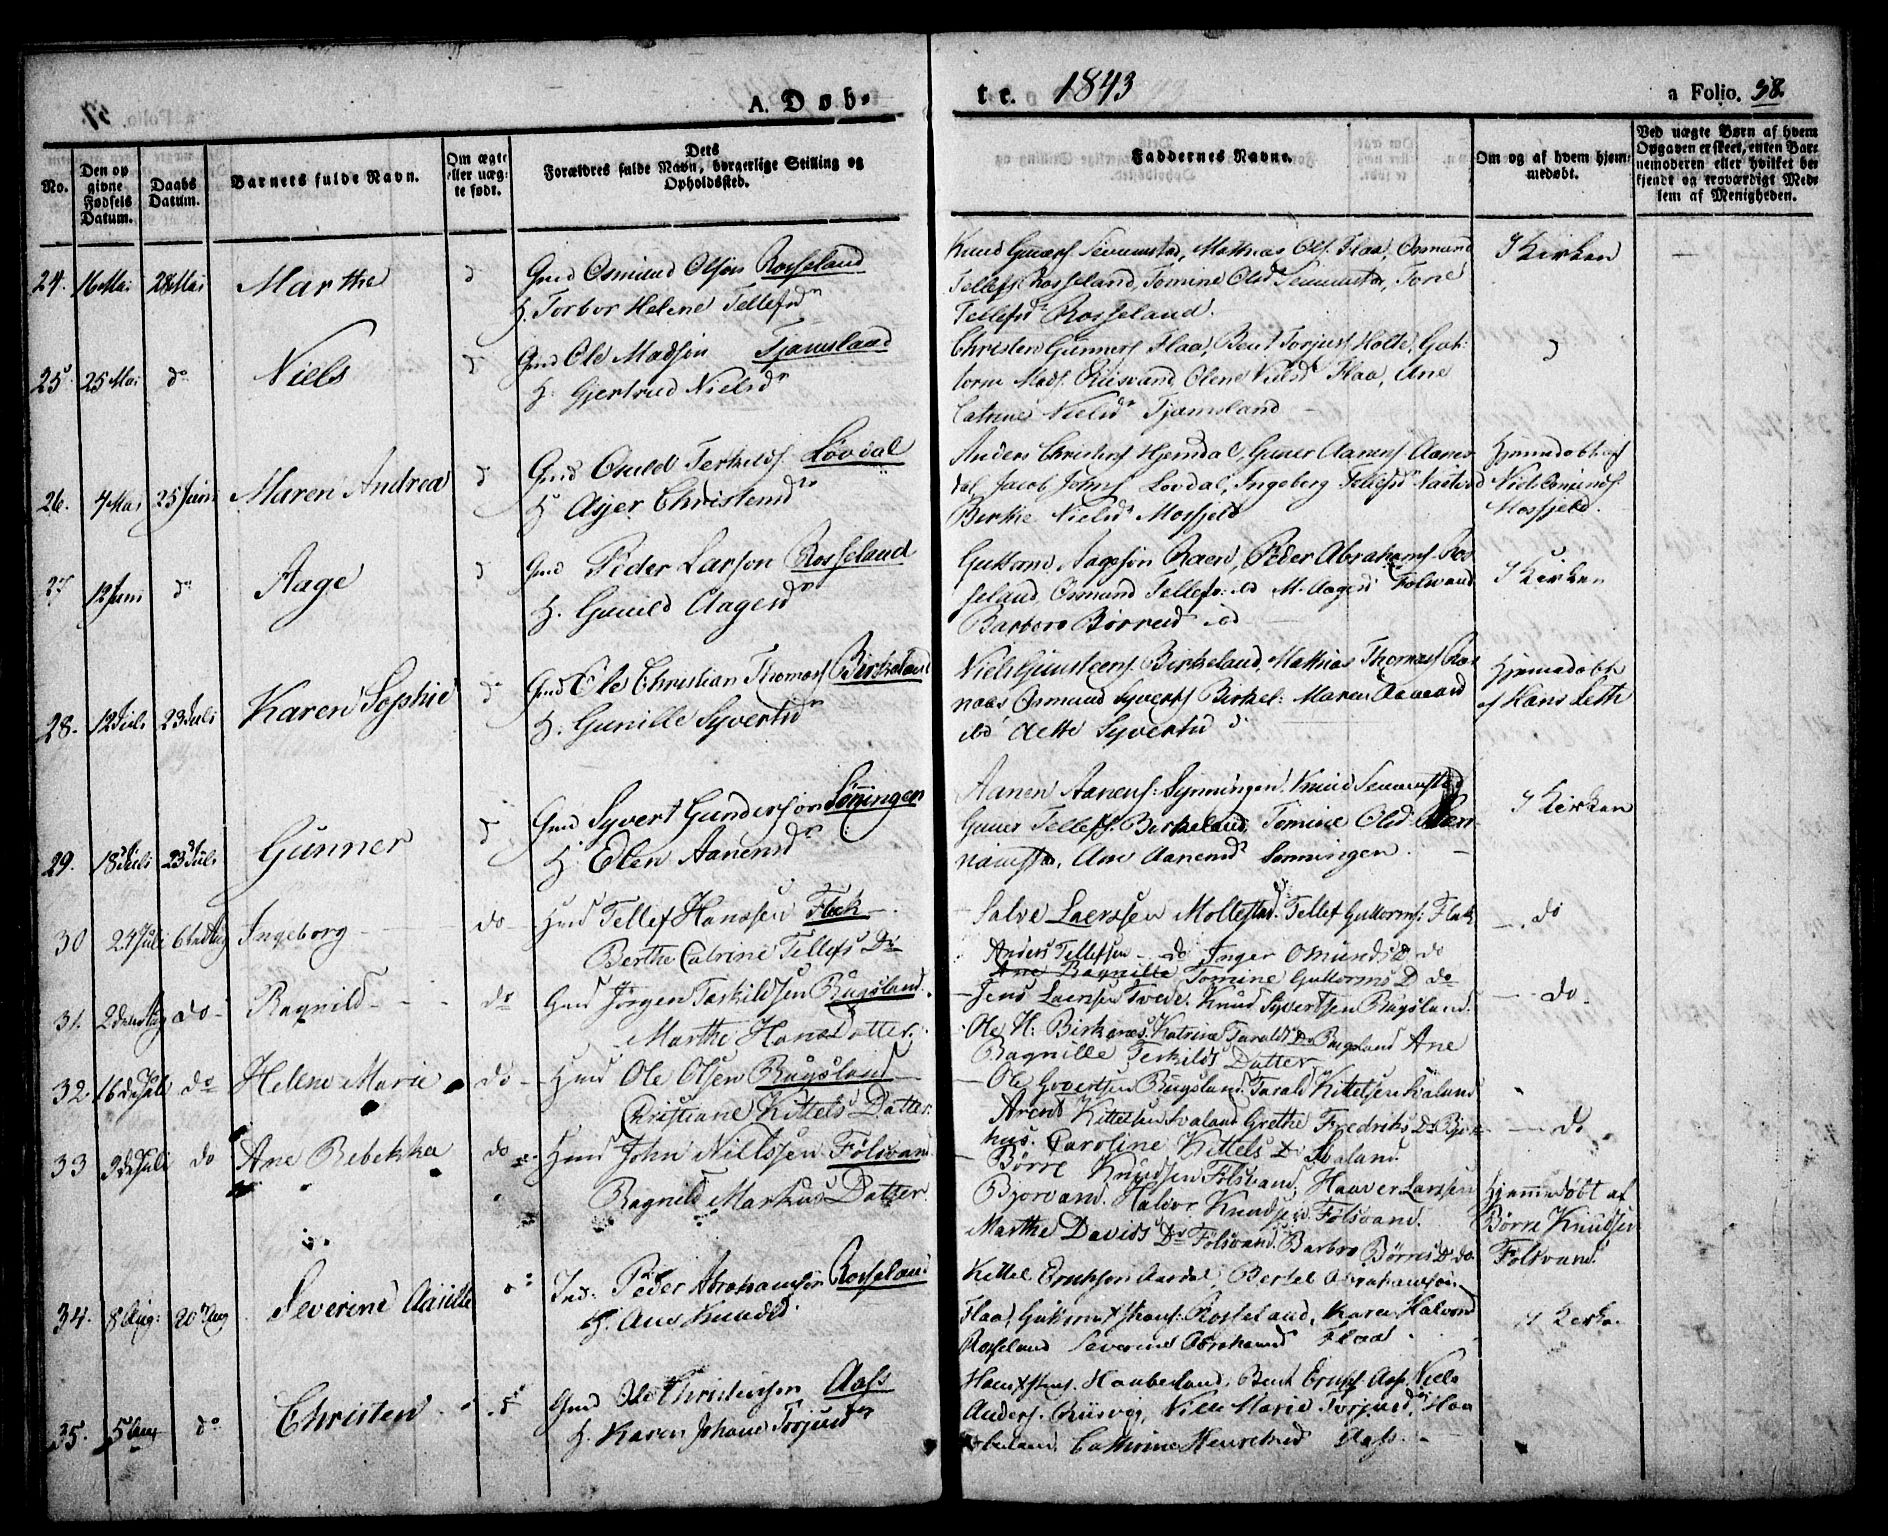 A. Døb-
te. 1843
a Folio. 38.
No.
Den opgivne Fødsels Datum.
Daabs Datum.
Barnets fulde Navn.
Om ægte eller uægte født.
Dets Forældres fulde Navn, borgerlige Stilling og Opholdssted.
Faddernes Navne.
Om og af hvem hjemmedøbt.
Ved uægte Børn af hvem Opgaven er skeet, enten Barnemoderen eller hvilket bekjendt og troværdigt Medlem af Menigheden.
24. 16 Mai 28 Mai Marthe
Gmd Osmund Olsøn Rosseland
H. Torbor Helene Tellefsdr
Knud Gunners. Mathias Ols. Flaa, Osmund
Tellefs. Rosseland, Tomine Olsd Tone
Tellefsdr Rosseland.
I Kirken
25. 25 Mai do Niels
Gmd Ole Madsøn Tjomsland
H. Gjertrud Nielsdr
Christen Gunners Flaa, Bent Torjus Holte, Gut-
torm Mads. Olene Nielsd Flaa, Ane
Catrine Nielsdr Tjomsland
26. 4 Mai 25 Juni Maren Andrea
Gmd Osuld Terkilds. Løvdal
H. Asjer Christensdr
Anders Christens Hjemdal, Gunner Aanens. Aanes-
dal, Jacob Johns Lovdal, Ingeborg Tellefsd
Berthe Nielsdr Mosfjeld
Hjemmedøbt af
Niels Osmunds.
Mosfjeld.
27. 12 Juni do Aage
Gmd Peder Larsøn Rosseland
H. Gunild Aagesdr
Guttorm Aagesøn Raen, Peder Abrahams. Ros-
seland, Osmund Tellefs. ibd M. Aagesd Folsvand
Barboro Børresd ibd
I Kirken
28. 12 Juli 23 Juli Karen Sophie do
Gmd Ole Christian Thomass Birkeland
H. Gunille Syvertsdr
Niels Gunsteens. Birkeland, Mathias Thomass
naas Osmund Syverts Birkel: Maren
ibd Aette Syvertsd
Hjemmedøbt
af Hans Leth
29. 18 Juli 23 Juli Gunner
Gmd Syvert Gundersøn Sønningen
H. Elen Aanensdr
Aanen Aanens. Synningen, Knud
Gunner Tellefs. Birkeland, Tomine Olsd
Ane Aanensdr Sønningen.
I Kirken
30 24 Juli 6te Aug Ingeborg do
Hmd Tellef Hanssen Fleck
Berthe Catrine Tellefs Dr
Salve Laerssen Mollestad. Tellef Guttorms: Flek
Anders Tellefsen do Inger Omunds Dr do
Ane Ragnille Tomine Guttorms D do
do
31. 2den Aug do Ragnild do
Gmd Jörgen Terkildsen Rugsland.
Marthe Hans Datter.
Jens Laerssen Tvede. Knud Syvertsen Rugsland.
Ole H: Birkenes. Katrine Taralds Dr Rugsland Ane
Ragnille Terkilds Datter
do
32. 16de Juli do Helene Marie do
Hmd Ole Olsen Rugsland
Christiane Kittels Datter.
Ole Gvertsen Rugsland. Tarald Kittelsen Svaland
Arent Kittelsen Svaland Grethe Fredriks Dr Bjor-
hus. Caroline Kittels Dr Svaland
do
33 9de Juli do Ane Rebekka do
Hmd John Nillssen Fölsvand
Ragnild Markus Datter.
Börre Knudsen Fölsvand, Haaver Larssen
Bjorvand. Halvor Knudsen Fölsvand.
Marthe Davids Dr Fölsvand. Barbro Börres Dr do
Hjemmedøbt af
Börre Knudsen
Folsvand.
34. 8 Aug: 20 Aug Severine Aasille
Ind: Peder Abrahamsøn Rosseland
H. Ane Knudsd.
Kittel Eriksøn Aardal, Bertel Abrahamsøn
Flaa, Rosseland, Karen Halvorsd
Rosseland Severine Abrahamsd Flaa
I Kirken
35. 5 Aug do Christen
Gmd Ole Christensøn Aass
H. Karen Johane Torjusdr
Haabesland, Bent Aass, Niels
Anders. Risvig, Nille Marie Torjusd, Haa-
besland, Cathrine Henriksd Aass.